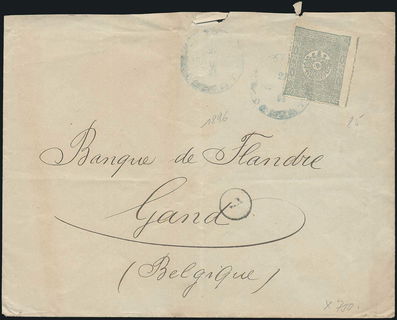 1896
Banque de Flandre
Gand
(Belgique)
x 750.